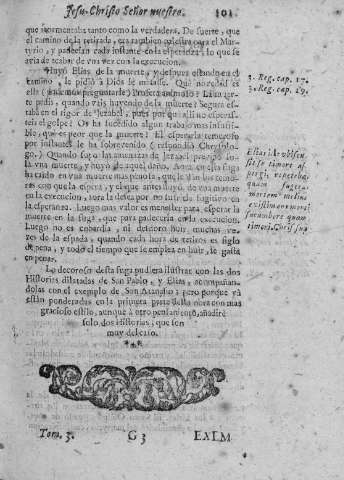 Jesu-Christo Señor nuestro. 101
que atormentaba tanto como la verdadera. De suerte, que
el camino de la retirada, era tambien palestra para el Mar-
tyrio, y padecian cada instante en la esperanza, lo que se
avia de acabar de una vez con la execucion.
Huyò Elias de la muerte, y despues estando en el
camino, le pidiò à Dios le matasse. Què novedad es
ella (podemos preguntarle) Profeta animoso? La muer-
te pedis, quando vais huyendo de la muerte? Segura es-
taba en el rigor de Jezabèl, pues por què alli no esperas-
teis el golpe? Os ha sucedido algun trabajo mas insufri-
ble, que es peor que la muerte! El esperarla temeroso
por instantes le ha sobrevenido (respondiò Chrysolo-
go) Quando
la una muerte, y huyò de aquel daño. Aora en esta fuga
ha caido en una muerte mas penosa, que le dàn los temo-
res con que la espera, y el que antes huyò de una muerte
en la execucion, aora la desea por no sufrir de fugitivo en
la esperanza. Luego mas valor es menester para esperar la
muerte en la fuga, que para padecerla en la execucion.
Luego no es cobardia, ni desdoro huir, muchas ve-
zes de la espada, quando cada hora de retiro es siglo
de pena, y todo el tiempo que se emplea en huir, se gasta
en penar.
Lo decoroso desta fuga pudiera ilustrar con las dos
Historias dilatadas de San Pablo, y Elias, acompañan-
dolas con el exemplo de San Atanasio; pero porque yà
estàn ponderadas en la primera parte desta obra con mas
gracioso estilo, aunque à otro pensamiento, añadirè
solo dos Historias, que son
muy del caso.
***
3. Reg. cap. 17.
3. Reg. cap. 19.
timore
pergi, repetebat
quam fugerat
mortem melius
existimans mori
sucumbere quam
timeri. Chris. sup.
Tom. 3. G 3 EXEM-